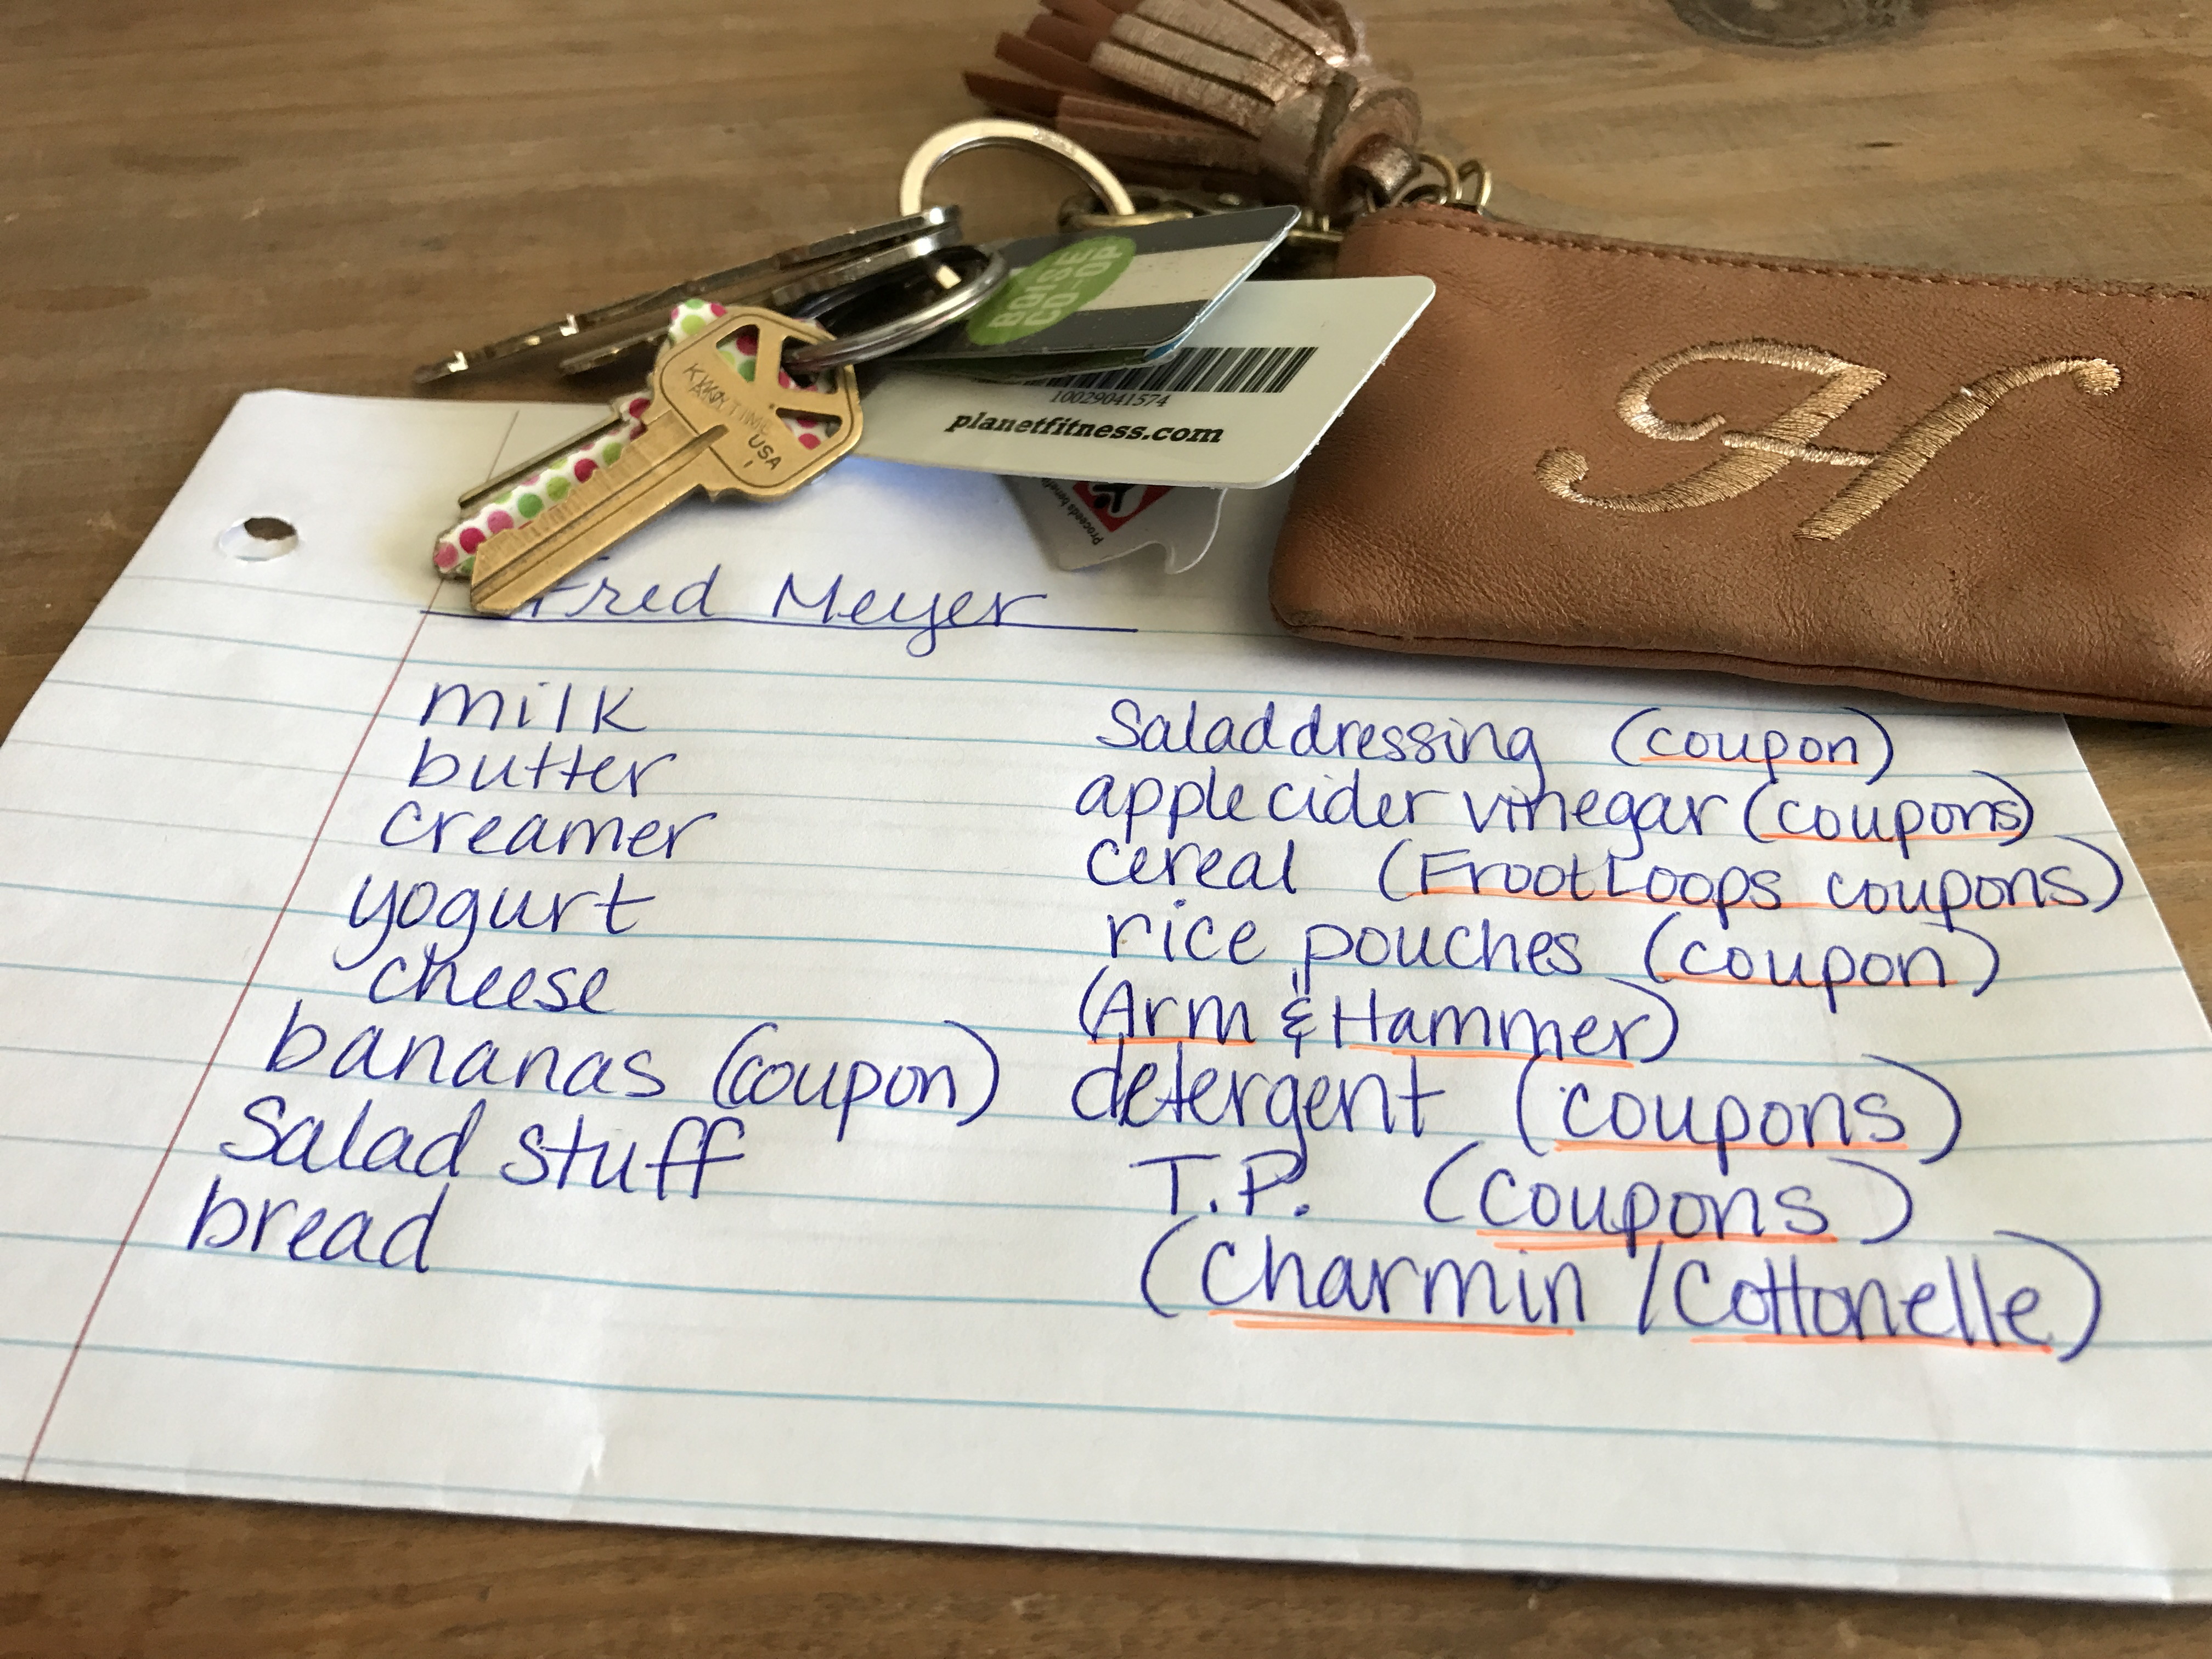 BOISE
CO-OP
10029041574
planetfitness.com
USA
Proceeds benefit
H
Fred Meyer
milk
butter
creamer
yogurt
cheese
bananas (coupon)
Salad stuff
bread
Salad dressing (coupon)
apple cider vinegar (coupons)
cereal (Froot Loops coupons)
rice pouches (coupon)
(Arm & Hammer)
detergent (coupons)
T.P. (coupons)
(Charmin / Cottonelle)